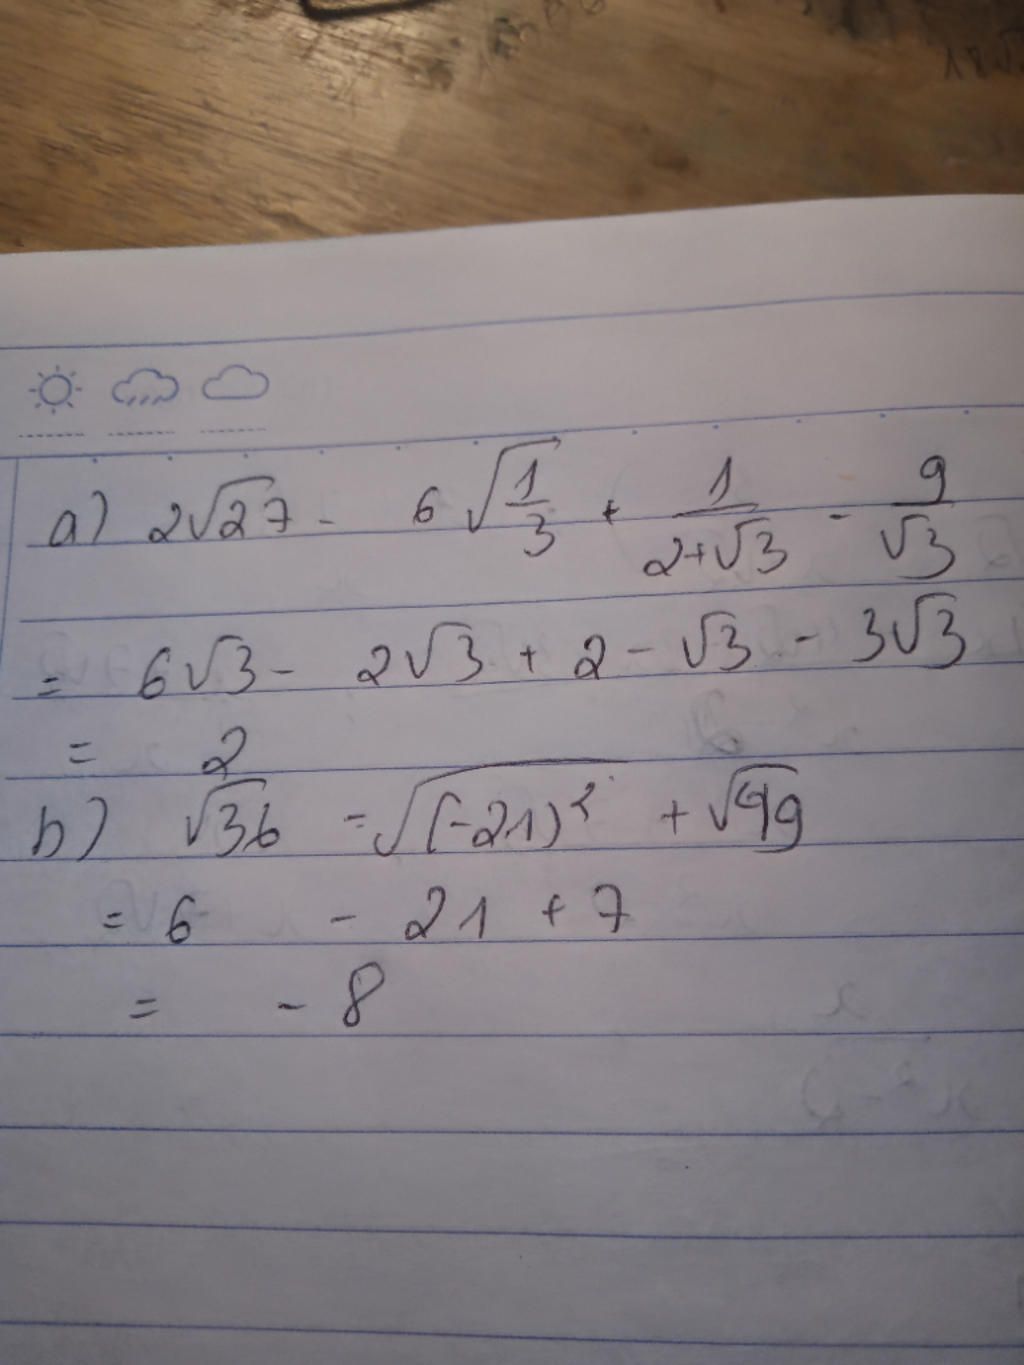 a) 2√27 - 6√(1/3) + 1/(2+√3) - 9/√3
= 6√3 - 2√3 + 2 - √3 - 3√3
= 2
b) √36 - √((-21)²) + √49
= 6 - 21 + 7
= - 8